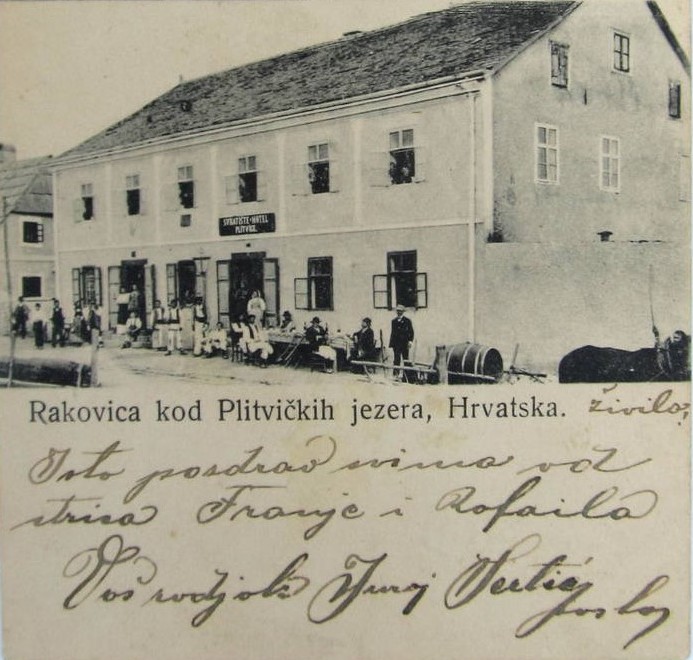 SVRATIŠTE-HOTEL
PLITVICE.
Rakovica kod Plitvičkih jezera, Hrvatska.
živila,
Isto pozdrav svima od
strica Franje i Rofaila
Vaš rodjak Juraj